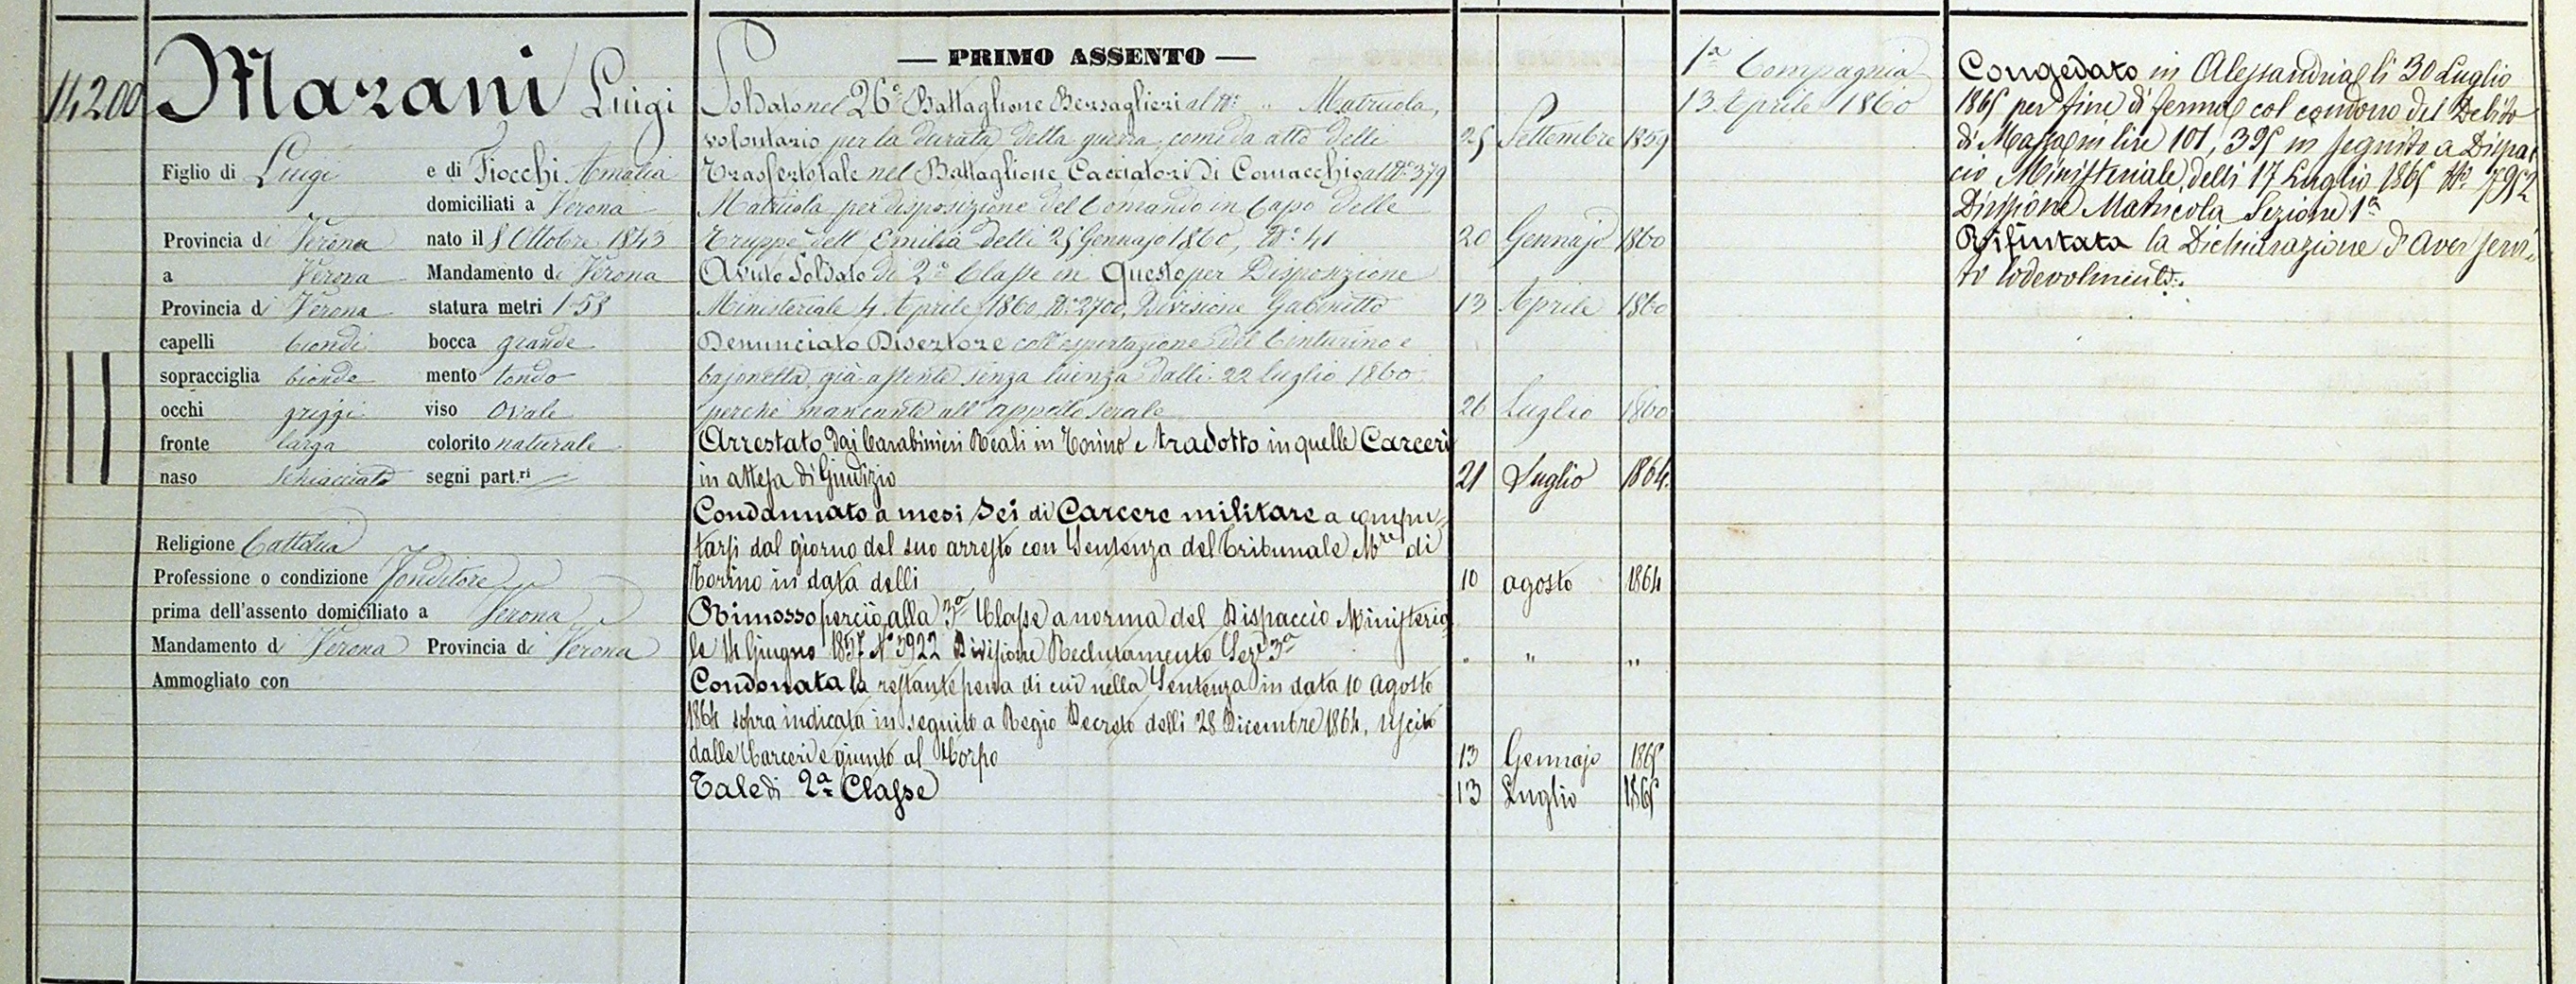 14200
Marani Luigi
Figlio di Luigi e di Fiocchi Amalia
domiciliati a Verona
Provincia di Verona nato il 8 Ottobre 1843
a Verona Mandamento di Verona
Provincia di Verona statura metri 1.53
capelli biondi bocca grande
sopracciglia bionde mento tondo
occhi griggi viso Ovale
fronte larga colorito naturale
naso Schiacciato segni part.ri
Religione Cattolica
Professione o condizione Fonditore
prima dell'assento domiciliato a Verona
Mandamento di Verona Provincia di Verona
Ammogliato con
— PRIMO ASSENTO —
Soldato nel 26° Battaglione Bersaglieri al N° „ Matricola,
volontario per la durata della guerra, come da atto delli 25 Settembre 1859
Trasferto tale nel Battaglione Cacciatori di Comacchio al N° 379
Matricola per disposizione del Comando in Capo delle
Truppe dell'Emilia delli 25 Gennajo 1860, N° 41 20 Gennajo 1860
Avuto Soldato di 2a Classe in Questo per Disposizione
Ministeriale 4 Aprile 1860 N° 2700, Divisione Gabinetto 13 Aprile 1860
Denunciato Disertore coll'esportazione del Cinturino e
bajonetta, già assente senza licenza dalli 22 luglio 1860
perchè mancante all'appello serale 26 Luglio 1860
Arrestato dai Carabinieri Reali in Torino e tradotto in quelle Carceri
in attesa di Giudizio 21 Luglio 1864.
Condannato a mesi sei di Carcere militare a compu-
tarsi dal giorno del suo arresto con Sentenza del Tribunale Mre di
Torino in data delli 10 agosto 1864
Rimosso perciò alla 3a Classe a norma del Dispaccio Ministeria
le 14 Giugno 1857 N° 3922 Divisione Reclutamento Sez. 3a . „ „
Condonata la restante pena di cui nella Sentenza in data 10 Agosto
1864 sopra indicata in seguito a Regio Decreto delli 28 Dicembre 1864, uscito
dalle Carceri e giunto al Corpo 13 Gennajo 1865
Tale di 2a Classe 13 Luglio 1865
1a Compagnia
13 Aprile 1860
Congedato in Alessandria li 30 Luglio
1865 per fine di ferma col condono del Debito
di Massa in lire 101,395 in seguito a Dispac
cio Ministeriale delli 17 Luglio 1865 N° 7952
Divisione Matricola Sezione 1a
Rifiutata la Dichiarazione d'Aver servi
to lodevolmente.